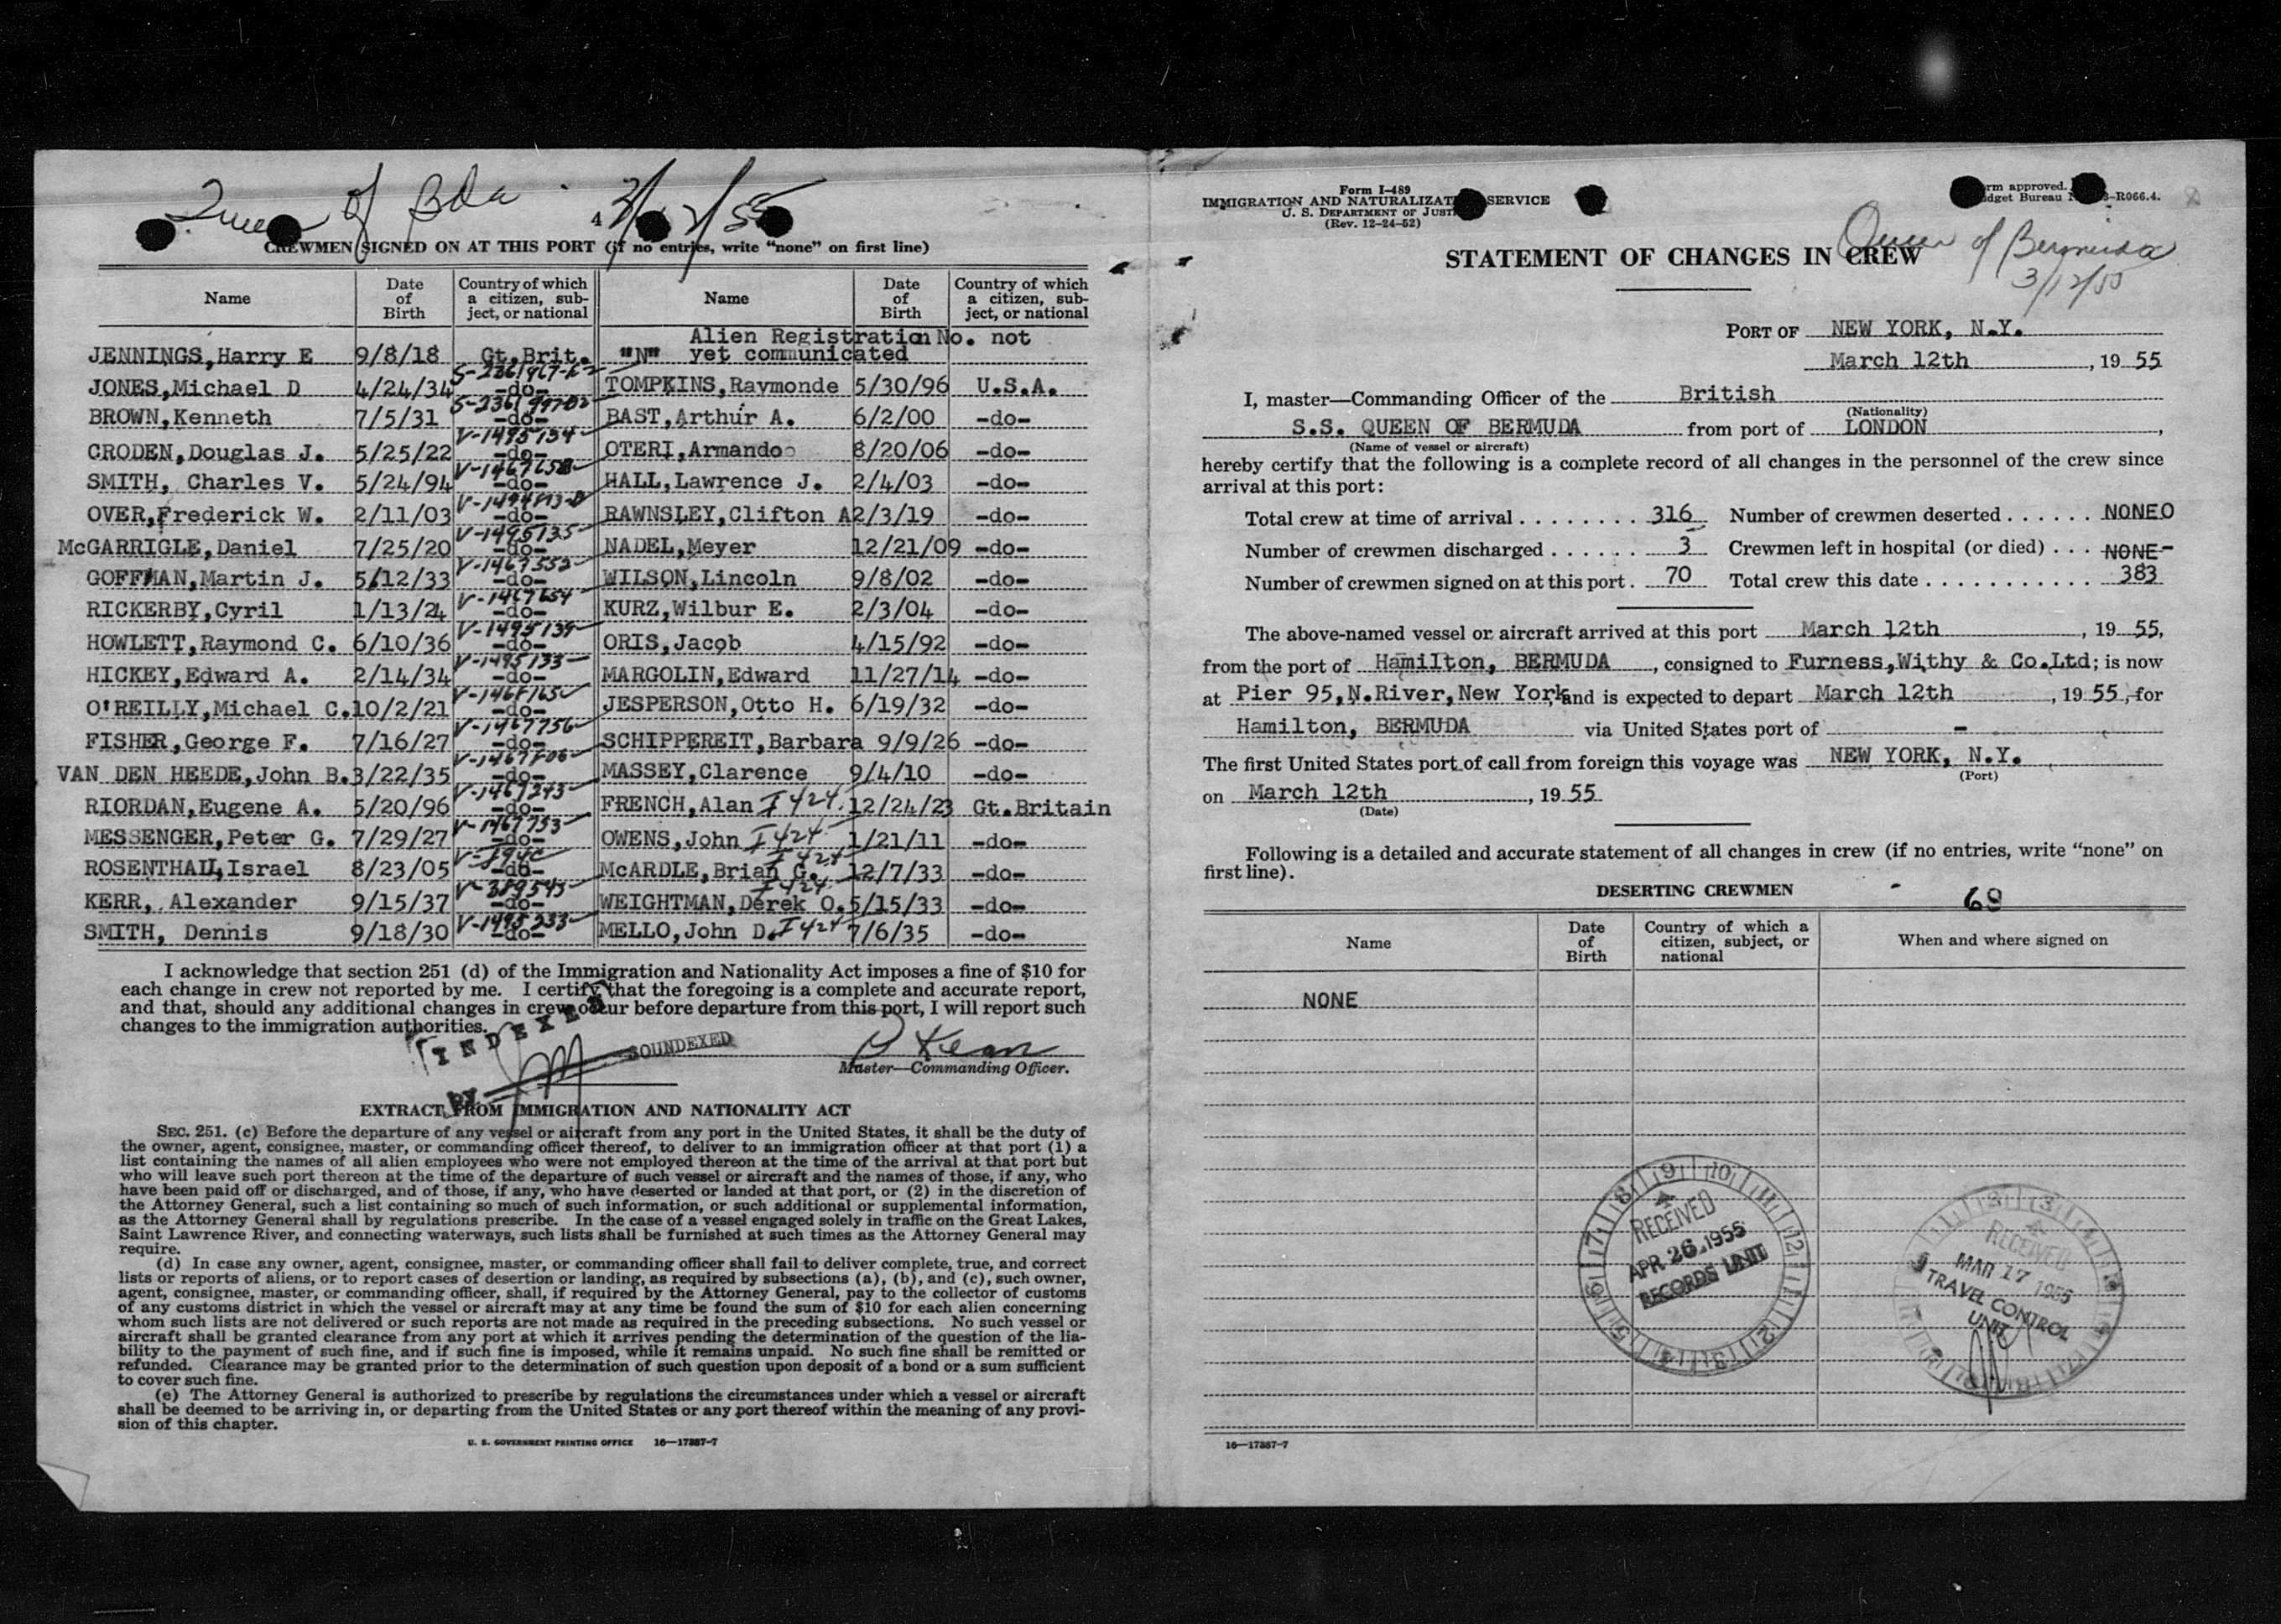 Queen of Bda. 3/12/55
4
CREWMEN SIGNED ON AT THIS PORT (if no entries, write "none" on first line)
Name Date of Birth Country of which a citizen, subject, or national Name Date of Birth Country of which a citizen, subject, or national
Alien Registration No. not
JENNINGS,Harry E 9/8/18 Gt.Brit. "N" yet communicated
JONES,Michael D 4/24/34 -do- TOMPKINS,Raymonde 5/30/96 U.S.A.
BROWN,Kenneth 7/5/31 -do- BAST,Arthur A. 6/2/00 -do-
CRODEN,Douglas J. 5/25/22 V-1495134 -do- OTERI,Armando 8/20/06 -do-
SMITH, Charles V. 5/24/94 -do- HALL,Lawrence J. 2/4/03 -do-
OVER,Frederick W. 2/11/03 -do- RAWNSLEY,Clifton A 2/3/19 -do-
McGARRIGLE,Daniel 7/25/20 V-1495135 -do- NADEL,Meyer 12/21/09 -do-
GOFFMAN,Martin J. 5/12/33 V-1467552 -do- WILSON,Lincoln 9/8/02 -do-
RICKERBY,Cyril 1/13/24 V-1467654 -do- KURZ,Wilbur E. 2/3/04 -do-
HOWLETT,Raymond C. 6/10/36 V-1495139 -do- ORIS,Jacob 4/15/92 -do-
HICKEY,Edward A. 2/14/34 V-1495133 -do- MARGOLIN,Edward 11/27/14 -do-
O'REILLY,Michael C. 10/2/21 -do- JESPERSON,Otto H. 6/19/32 -do-
FISHER,George F. 7/16/27 V-1467756 -do- SCHIPPEREIT,Barbara 9/9/26 -do-
VAN DEN HEEDE,John B. 3/22/35 -do- MASSEY,Clarence 9/4/10 -do-
RIORDAN,Eugene A. 5/20/96 V-1467243 -do- FRENCH,Alan I 424 12/24/23 Gt.Britain
MESSENGER,Peter G. 7/29/27 V-1467753 -do- OWENS,John I 424 1/21/11 -do-
ROSENTHALL,Israel 8/23/05 -do- McARDLE,Brian G. I 424 12/7/33 -do-
KERR, Alexander 9/15/37 V-389543 -do- WEIGHTMAN,Derek O. I 424 5/15/33 -do-
SMITH, Dennis 9/18/30 V-1495233 -do- MELLO,John D. I 424 7/6/35 -do-
I acknowledge that section 251 (d) of the Immigration and Nationality Act imposes a fine of $10 for
each change in crew not reported by me. I certify that the foregoing is a complete and accurate report,
and that, should any additional changes in crew occur before departure from this port, I will report such
changes to the immigration authorities.
INDEXED
BY
SOUNDEXED
Master—Commanding Officer.
EXTRACT FROM IMMIGRATION AND NATIONALITY ACT
SEC. 251. (c) Before the departure of any vessel or aircraft from any port in the United States, it shall be the duty of
the owner, agent, consignee, master, or commanding officer thereof, to deliver to an immigration officer at that port (1) a
list containing the names of all alien employees who were not employed thereon at the time of the arrival at that port but
who will leave such port thereon at the time of the departure of such vessel or aircraft and the names of those, if any, who
have been paid off or discharged, and of those, if any, who have deserted or landed at that port, or (2) in the discretion of
the Attorney General, such a list containing so much of such information, or such additional or supplemental information,
as the Attorney General shall by regulations prescribe. In the case of a vessel engaged solely in traffic on the Great Lakes,
Saint Lawrence River, and connecting waterways, such lists shall be furnished at such times as the Attorney General may
require.
(d) In case any owner, agent, consignee, master, or commanding officer shall fail to deliver complete, true, and correct
lists or reports of aliens, or to report cases of desertion or landing, as required by subsections (a), (b), and (c), such owner,
agent, consignee, master, or commanding officer, shall, if required by the Attorney General, pay to the collector of customs
of any customs district in which the vessel or aircraft may at any time be found the sum of $10 for each alien concerning
whom such lists are not delivered or such reports are not made as required in the preceding subsections. No such vessel or
aircraft shall be granted clearance from any port at which it arrives pending the determination of the question of the lia-
bility to the payment of such fine, and if such fine is imposed, while it remains unpaid. No such fine shall be remitted or
refunded. Clearance may be granted prior to the determination of such question upon deposit of a bond or a sum sufficient
to cover such fine.
(e) The Attorney General is authorized to prescribe by regulations the circumstances under which a vessel or aircraft
shall be deemed to be arriving in, or departing from the United States or any port thereof within the meaning of any provi-
sion of this chapter.
U. S. GOVERNMENT PRINTING OFFICE 16—17387-7
Form I-489
IMMIGRATION AND NATURALIZATION SERVICE
U. S. DEPARTMENT OF JUSTICE
(Rev. 12-24-52)
Form approved.
Budget Bureau -R066.4.
STATEMENT OF CHANGES IN CREW
Queen of Bermuda
3/12/55
PORT OF NEW YORK, N.Y.
March 12th, 19 55
I, master—Commanding Officer of the British
(Nationality)
S.S. QUEEN OF BERMUDA from port of LONDON,
(Name of vessel or aircraft)
hereby certify that the following is a complete record of all changes in the personnel of the crew since
arrival at this port:
Total crew at time of arrival ........ 316 Number of crewmen deserted ...... NONE0
Number of crewmen discharged ...... 3 Crewmen left in hospital (or died) ... NONE-
Number of crewmen signed on at this port. 70 Total crew this date ............ 383
The above-named vessel or aircraft arrived at this port March 12th, 19 55,
from the port of Hamilton, BERMUDA, consigned to Furness,Withy & Co.Ltd; is now
at Pier 95,N.River,New York, and is expected to depart March 12th, 19 55, for
Hamilton, BERMUDA via United States port of -
The first United States port of call from foreign this voyage was NEW YORK, N.Y.
(Port)
on March 12th, 19 55
(Date)
Following is a detailed and accurate statement of all changes in crew (if no entries, write "none" on
first line).
DESERTING CREWMEN
69
Name Date of Birth Country of which a citizen, subject, or national When and where signed on
NONE
RECEIVED
APR 26 1955
RECORDS UNIT
RECEIVED
MAR 17 1955
TRAVEL CONTROL
UNIT
16—17387-7